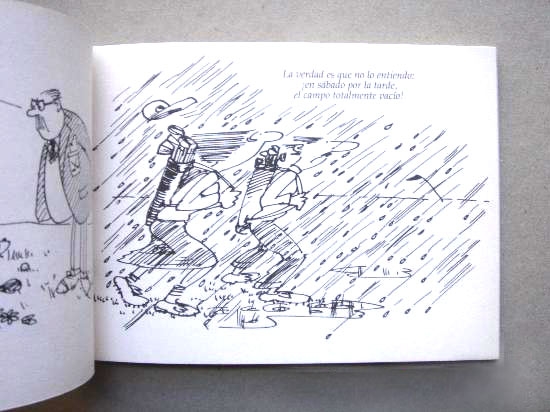 La verdad es que no lo entiendo:
¡en sábado por la tarde,
el campo totalmente vacío!